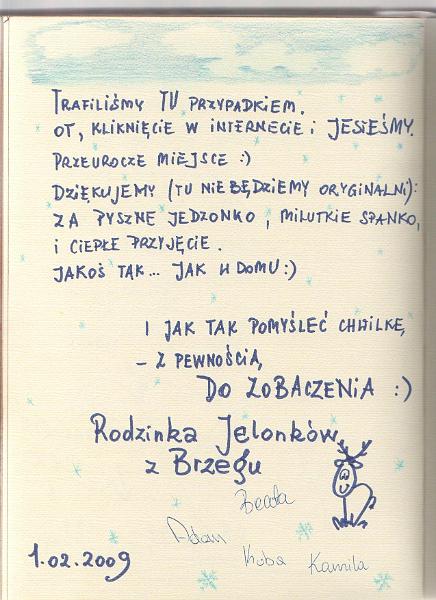 TRAFILIŚMY TU PRZYPADKIEM.
OT, KLIKNIĘCIE W INTERNECIE I JESTEŚMY.
PRZEUROCZE MIEJSCE :)
DZIĘKUJEMY (TU NIE BĘDZIEMY ORYGINALNI):
ZA PYSZNE JEDZONKO, MILUTKIE SPANKO,
I CIEPŁE PRZYJĘCIE.
JAKOŚ TAK... JAK W DOMU :)
I JAK TAK POMYŚLEĆ CHWILKĘ,
– Z PEWNOŚCIĄ,
DO ZOBACZENIA :)
Rodzinka Jelonków
z Brzegu
Beata
Adam
Kuba Kamila
1.02.2009